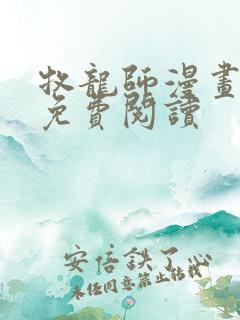 牧龍師漫畫
免費閱讀
安倍鉄了沁
未经同意禁止转载